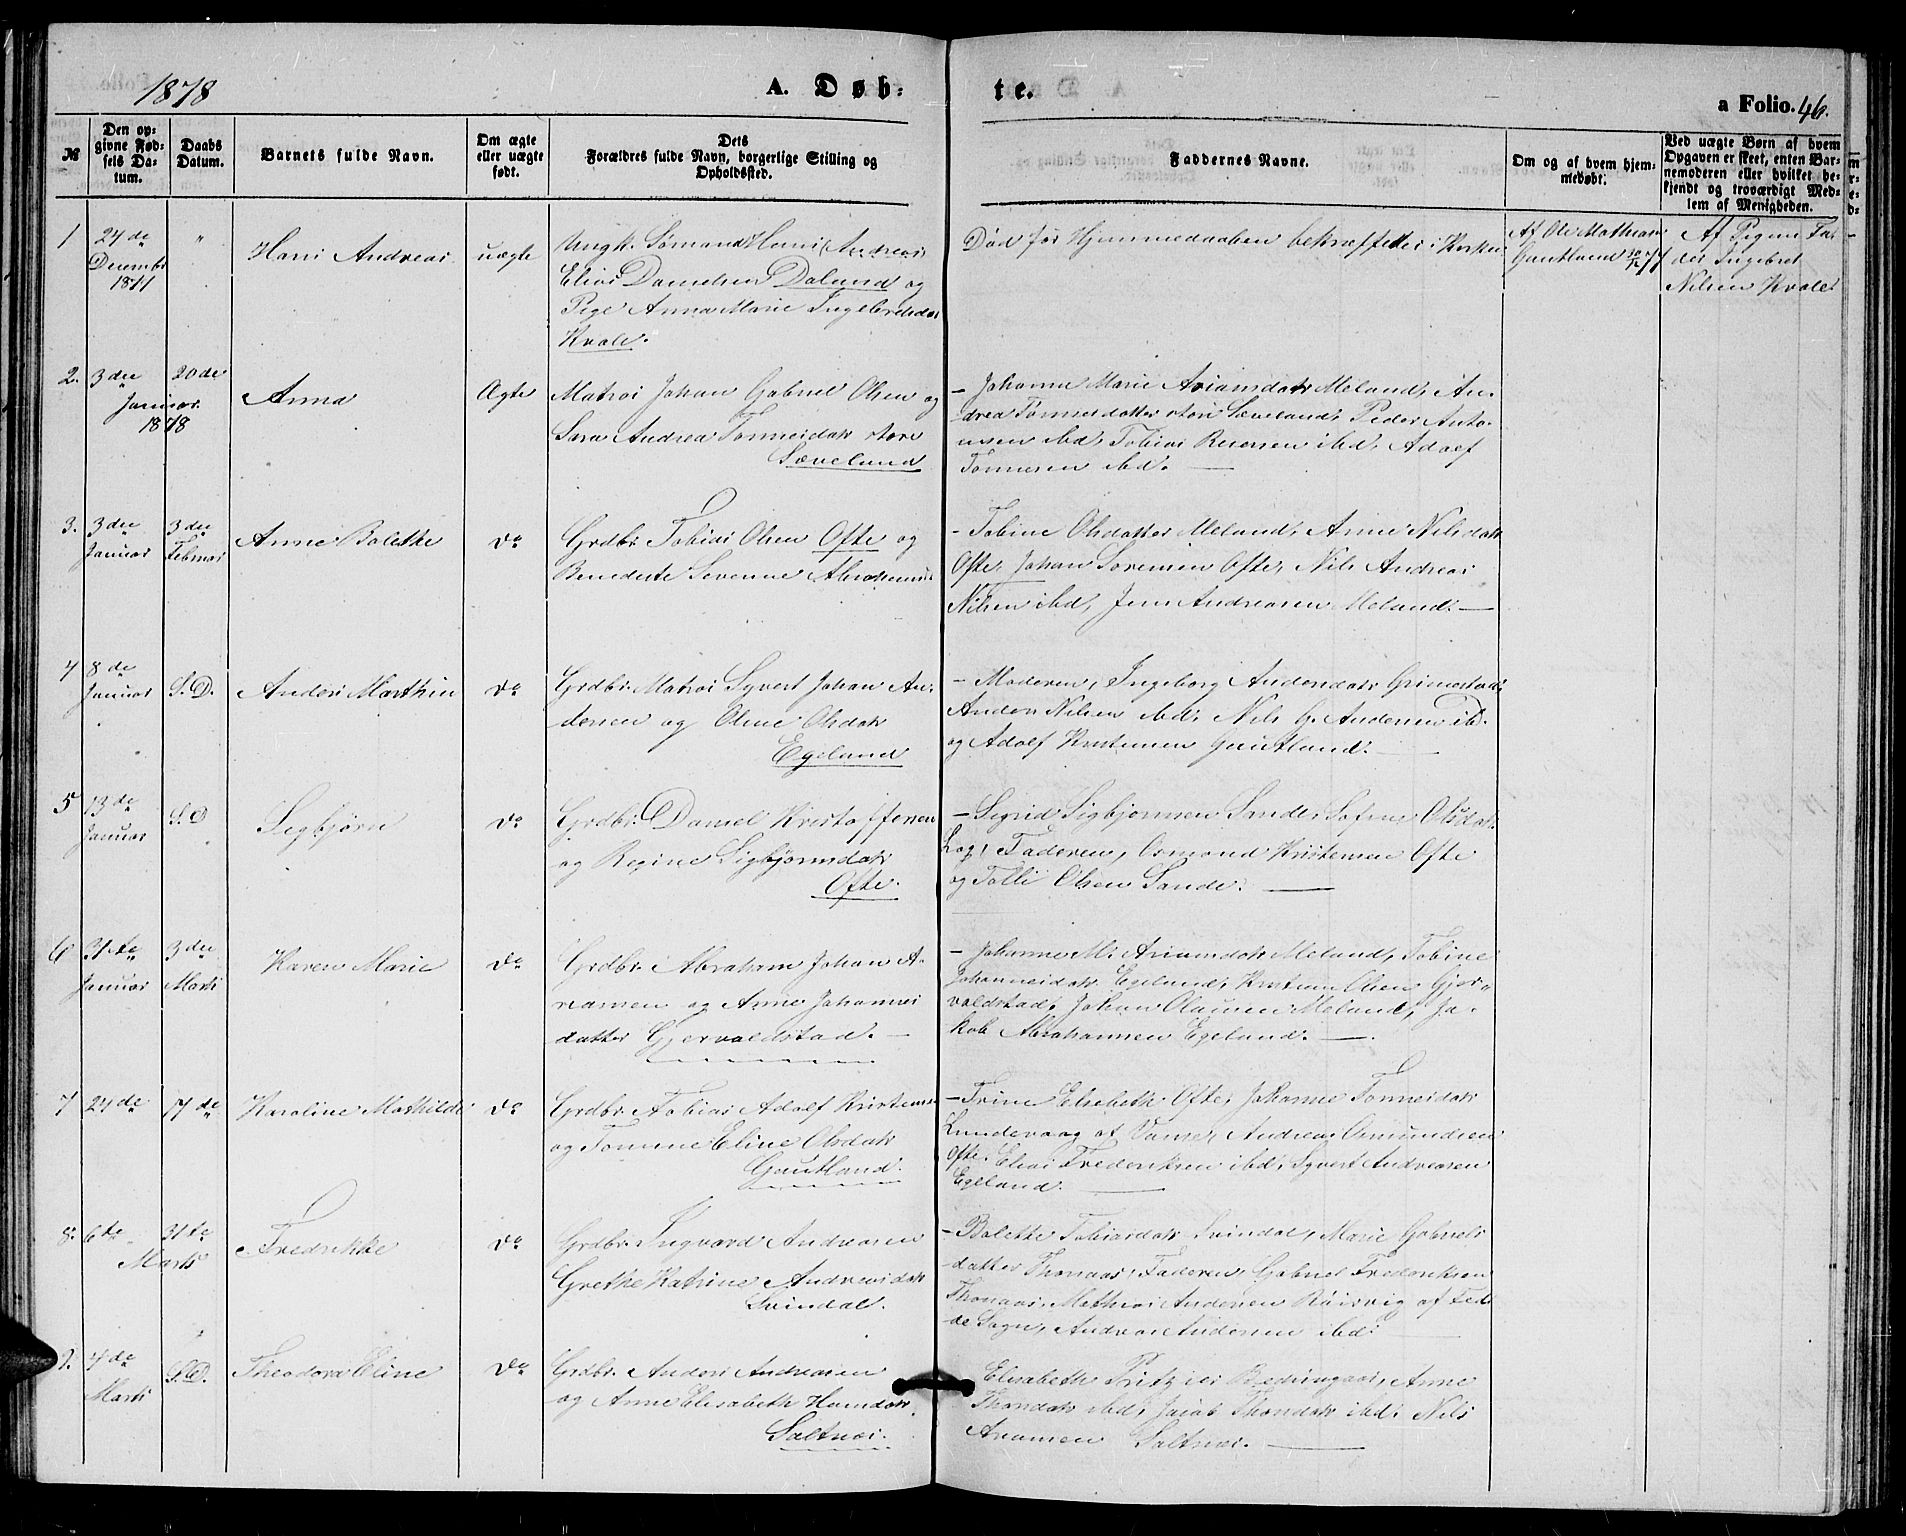 1878
A. Døb-
te.
a Folio. 46.
№
Den op-
givne Fød-
sels Da-
tum.
Daabs
Datum.
Barnets fulde Navn.
Om ægte
eller uægte
født.
Dets
Forældres fulde Navn, borgerlige Stilling og
Opholdssted.
Faddernes Navne.
Om og af hvem hjem-
medøbt.
Ved uægte Børn af hvem
Opgaven er skeet, enten Bar-
nemoderen eller hvilket be-
kjendt og troværdigt Med-
lem af Menigheden.
1
24de
Decembr
1877
"
Hans Andreas
uægte
Ungk. Sømand Hans Andreas
Elias Danielsen Daland og
Pige Anna Marie Ingebretsdar
Kvale.
Død før Hjemmedaaben bekræftedes i Kirken
Af Ole Mathias
Gautland 30/12 77
Af Pigens Fa-
der Ingebret
Nilsen Kvale
2.
3die
20de
Januar
1878
Anna
Ægte
Matros Johan Gabriel Olsen og
Sara Andrea Tønnesdatr store
Sæveland
– Johanne Marie Ariansdatr Meland, An-
drea Tønnesdatter store Sæveland, Peder Anto-
nsen ibd, Tobias Reiersen ibd, Adolf
Tønnesen ibd.
3.
3die
Januar
3die
Februar
Anne Bolethe
do
Grdbr. Tobias Olsen Ofte og
Benedicte Severine Abrahamsd
– Tobine Olsdatter Meland, Anne Nilsdatr
Ofte, Johan Sørensen Ofte, Nils Andreas
Nilsen ibd, Jens Andreasen Meland.
4
8de
Januar
S.D.
Anders Marthin
do
Grdbr. Matros Syvert Johan An-
dersen og Oline Olsdatr
Egeland
– Moderen, Ingeborg Andersdatr Grimestad,
Anders Nilsen ibd, Nils G. Andersen ibd.
og Adolf Kristensen Gautland.
5
13de
Januar
S.D
Segbjørn
do
Grdbr. Daniel Kristoffersen
og Regine Sigbjørnsdatr
Ofte.
– Sigrid Sigbjørnsen Sande, Sofie Olsdatr
Log, Faderen, Osmond Kristensen Ofte
og Tolli Olsen Sande.
6
31te
Januar
3die
Marts
Karen Marie
do
Grdbr. Abraham Johan A-
namsen og Anne Johannes
datter Gjervoldstad.
– Johanne M. Ariansdatr Meland, Tobine
Johannesdatr Egeland, Kristian Olsen Gjer-
voldstad, Johan Olausen Meland, Ja-
kob Abrahamsen Egeland.
7
24de
17de
Karoline Mathilde
do
Grdbr. Tobias Adolf Kristensen
og Tomine Eline Olsdatr
Gautland.
– Trine Elsebeth Ofte, Johanne Tønnesdatr
Lundevaag af Vanse, Andreas Osmundsen
Ofte, Elias Frederiksen ibd, Syvert Andreasen
Egeland.
8.
6te
31te
Marts
Fredrikke
do
Grdbr. Ingvard Andreasen
Grethe Katrine Andreasdatr
Svindal.
– Bolette Tobiasdatr Svindal, Marie Gabriels
datter Thonaas, Faderen, Gabriel Frederiksen
Thonaas, Mathias Andersen Röisvig af Fed-
de Sogn, Andreas Andersen ibd.
9.
4de
Marts
S.D.
Theodora Eline
do
Grdbr. Anders Andreasen
og Anne Elisabeth Hansdatr
Saltnæs.
Elisabeth Anne
Thorsdatr ibd, Jacob Thorsdatr ibd, Nils
Anamsen Saltnæs.